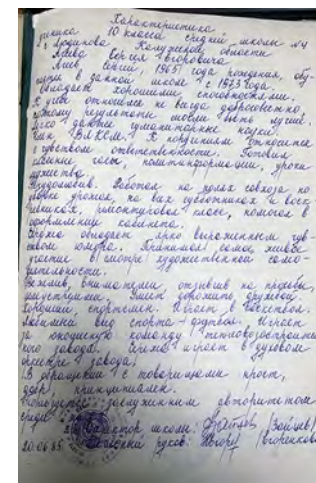 Характеристика
ученика 10 класса средней школы №4
г. Людинова Калужской области
Лиева Сергея Егоровича
Лиев Сергей, 1965 года рождения, обу-
чается в данной школе с 1973 года.
Обладает хорошими способностями.
К учебе относился не всегда добросовестно,
поэтому результаты могли быть лучше.
Легко даются гуманитарные науки.
Член ВЛКСМ. К поручениям относится
с чувством ответственности. Готовил
классные часы, политинформации, уроки
мужества.
Трудолюбив. Работал на полях совхоза по
уборке урожая, на всех субботниках и воск-
ресниках, ремонтировал класс, помогал в
оформлении кабинета.
Сережа обладает ярко выраженным чув-
ством юмора. Принимал самое живое
участие в смотре художественной само-
деятельности.
Вежлив, внимателен, отзывчив на просьбы,
Умеет дорожить дружбой.
Хороший спортсмен. Играет в
Любимый вид спорта - футбол. Играет
за юношескую команду тепловозостроитель-
ного завода. Сережа играет в духовом
оркестре завода.
В обращении с товарищами прост,
принципиален.
Пользуется заслуженным авторитетом
среди
Директор школы: /Зайцев/
Классный руков: /Егоренкова
20.06.83